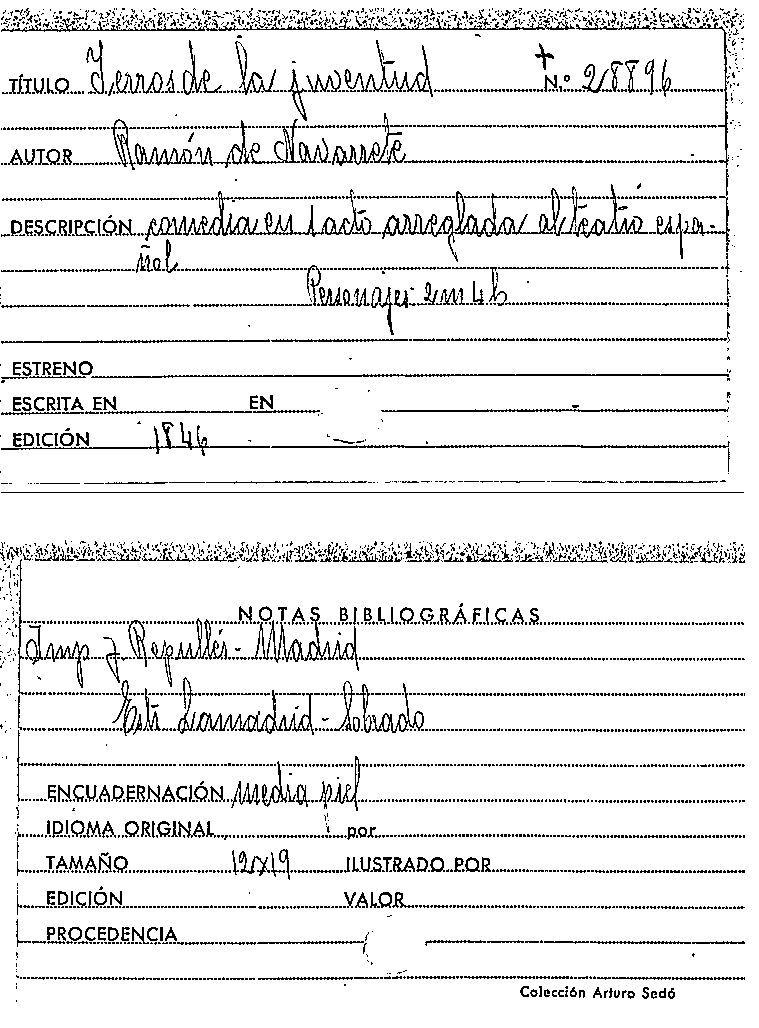 TÍTULO Yerros de la juventud + N.º 28896
AUTOR Ramón de Navarrete
DESCRIPCIÓN comedia en 1 acto arreglada al teatro espa-
ñol
Personajes 2m 4h
ESTRENO
ESCRITA EN EN
EDICIÓN 1846
NOTAS BIBLIOGRÁFICAS
Imp J. Repullés - Madrid
Lamadrid - Sobrado
ENCUADERNACIÓN media piel
IDIOMA ORIGINAL por
TAMAÑO 12x19 ILUSTRADO POR
EDICIÓN VALOR
PROCEDENCIA
Colección Arturo Sedó